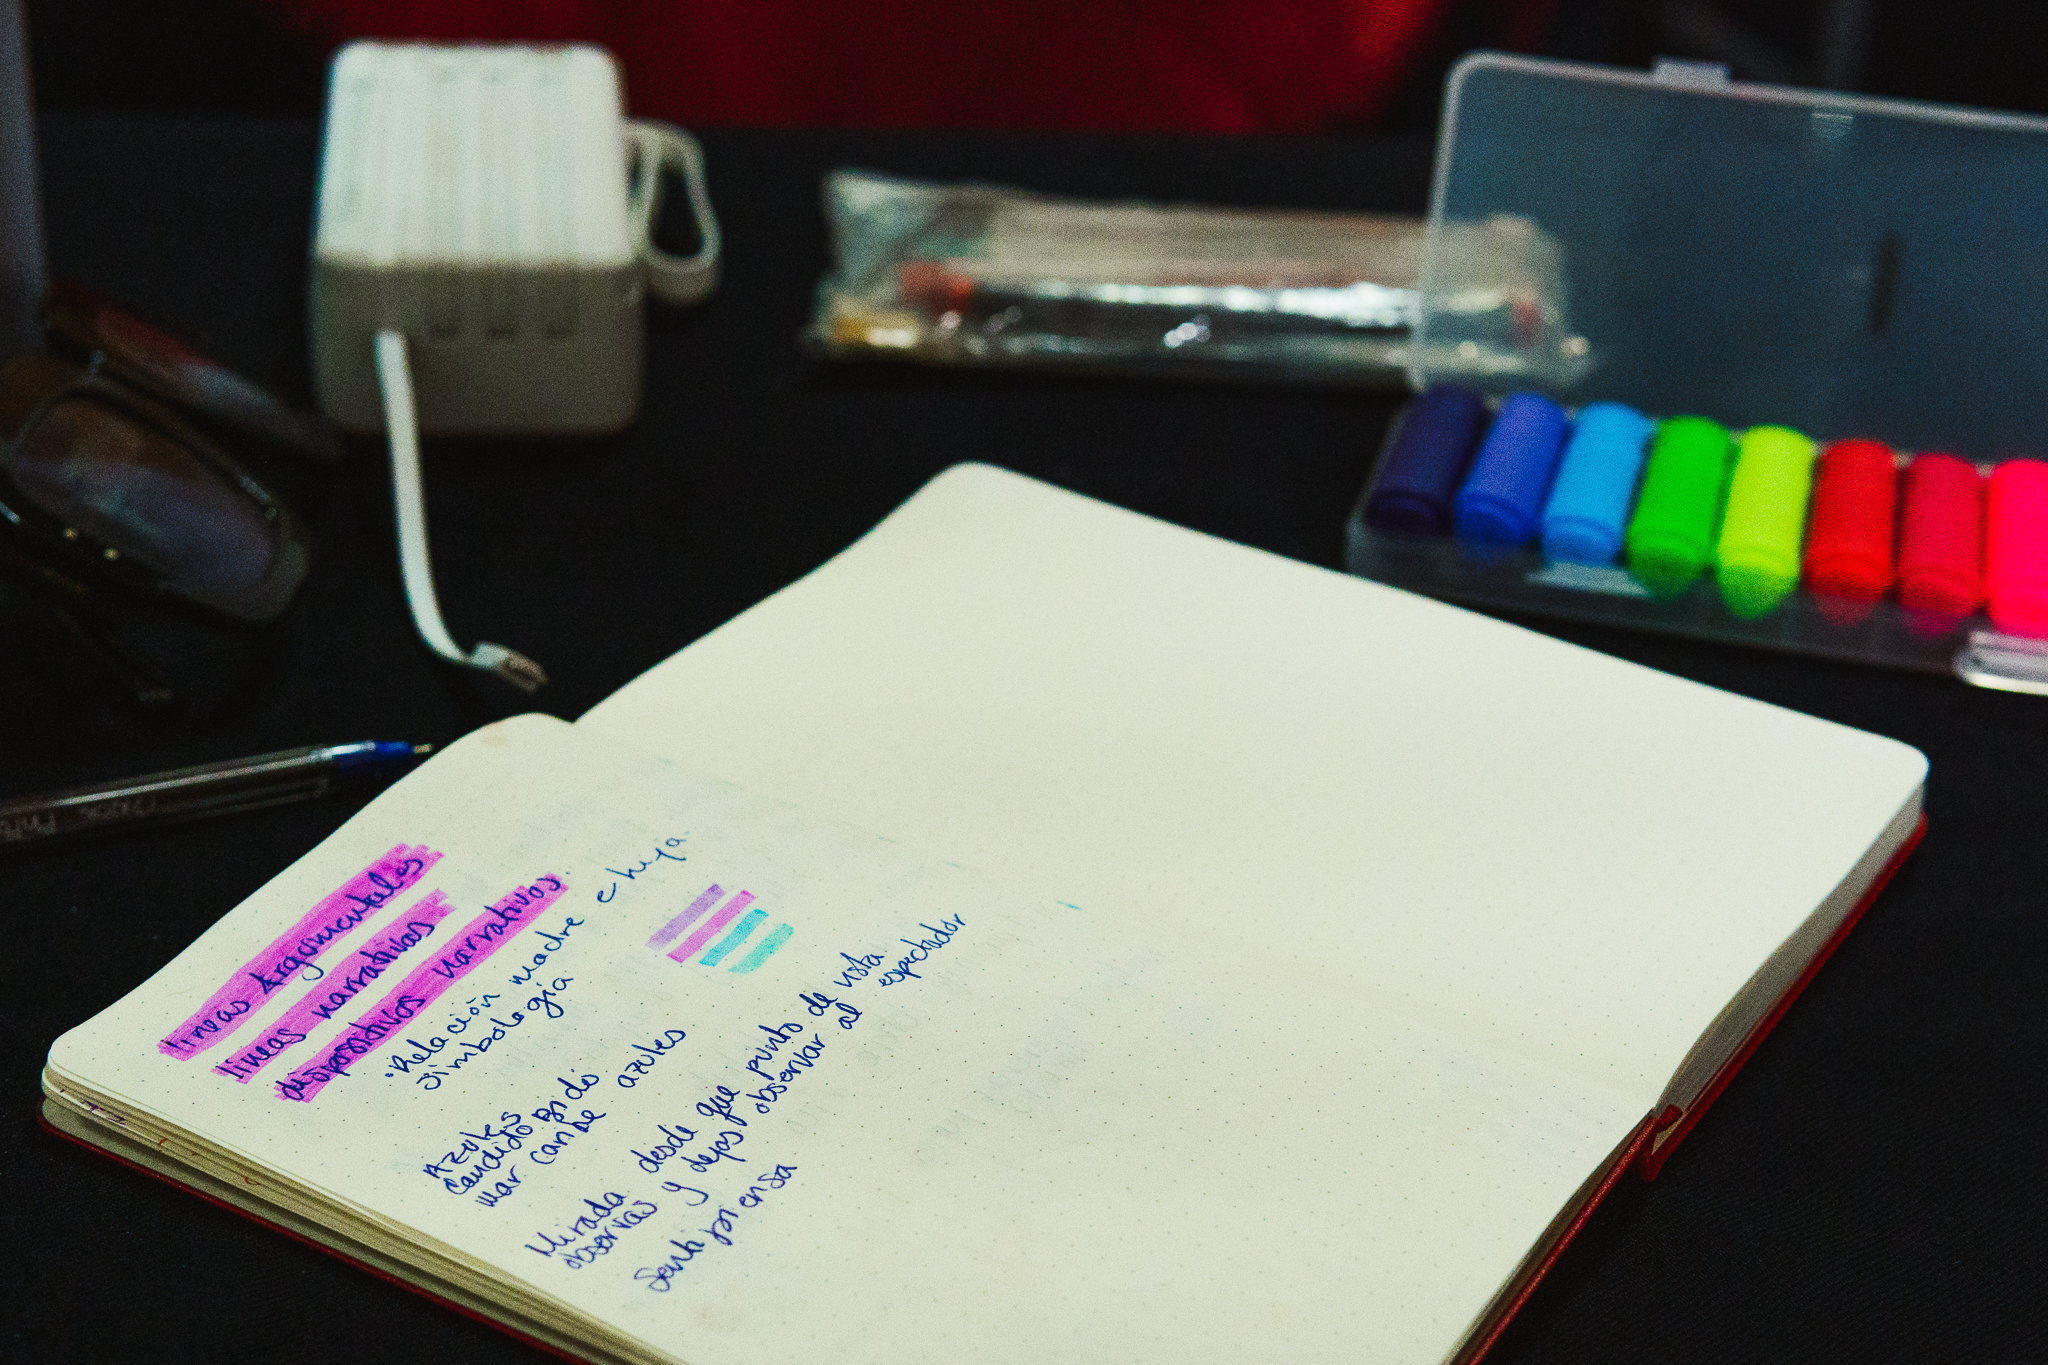 lineas Argumentales
lineas narrativas
dispositivos narrativos.
·Relación madre e huja.
simbología
Azules
Candido
mar caribe azules
Mirada desde que punto de vista
observas y dejas observar al espectador
senti piensa